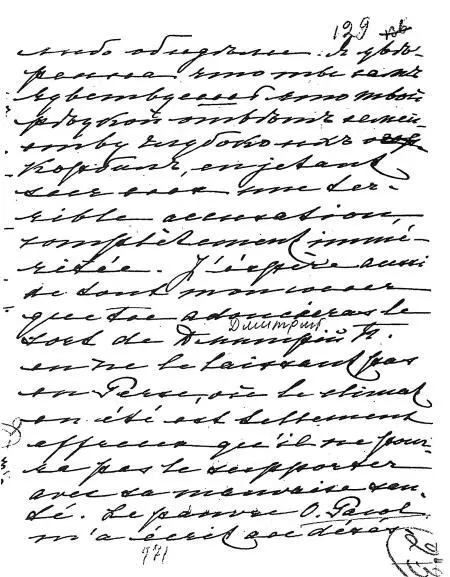 129
либо обидѣли. Я увѣ-
ренна что ты самъ
чувствуешь что твой
рѣзкой отвѣтъ семей-
ству глубоко ихъ ос-
корбилъ, en jetant
sur eux une ter-
rible accusation,
complètement immé-
ritée. J'espère aussi
de tout mon coeur
que tu adouciras le
Дмитрий
sort de Дмитрiй П.
en ne le laissant pas
en Perse, où le climat
en été est tellement
affreux qu'il ne pour-
ra pas le supporter
avec sa mauvaise san-
té. Le pauvre O. Paul
m'a écrit
971